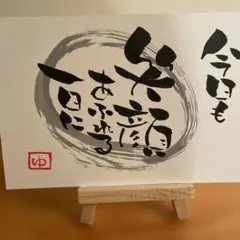 今日も
笑顔
あふれる
一日に
ゆ